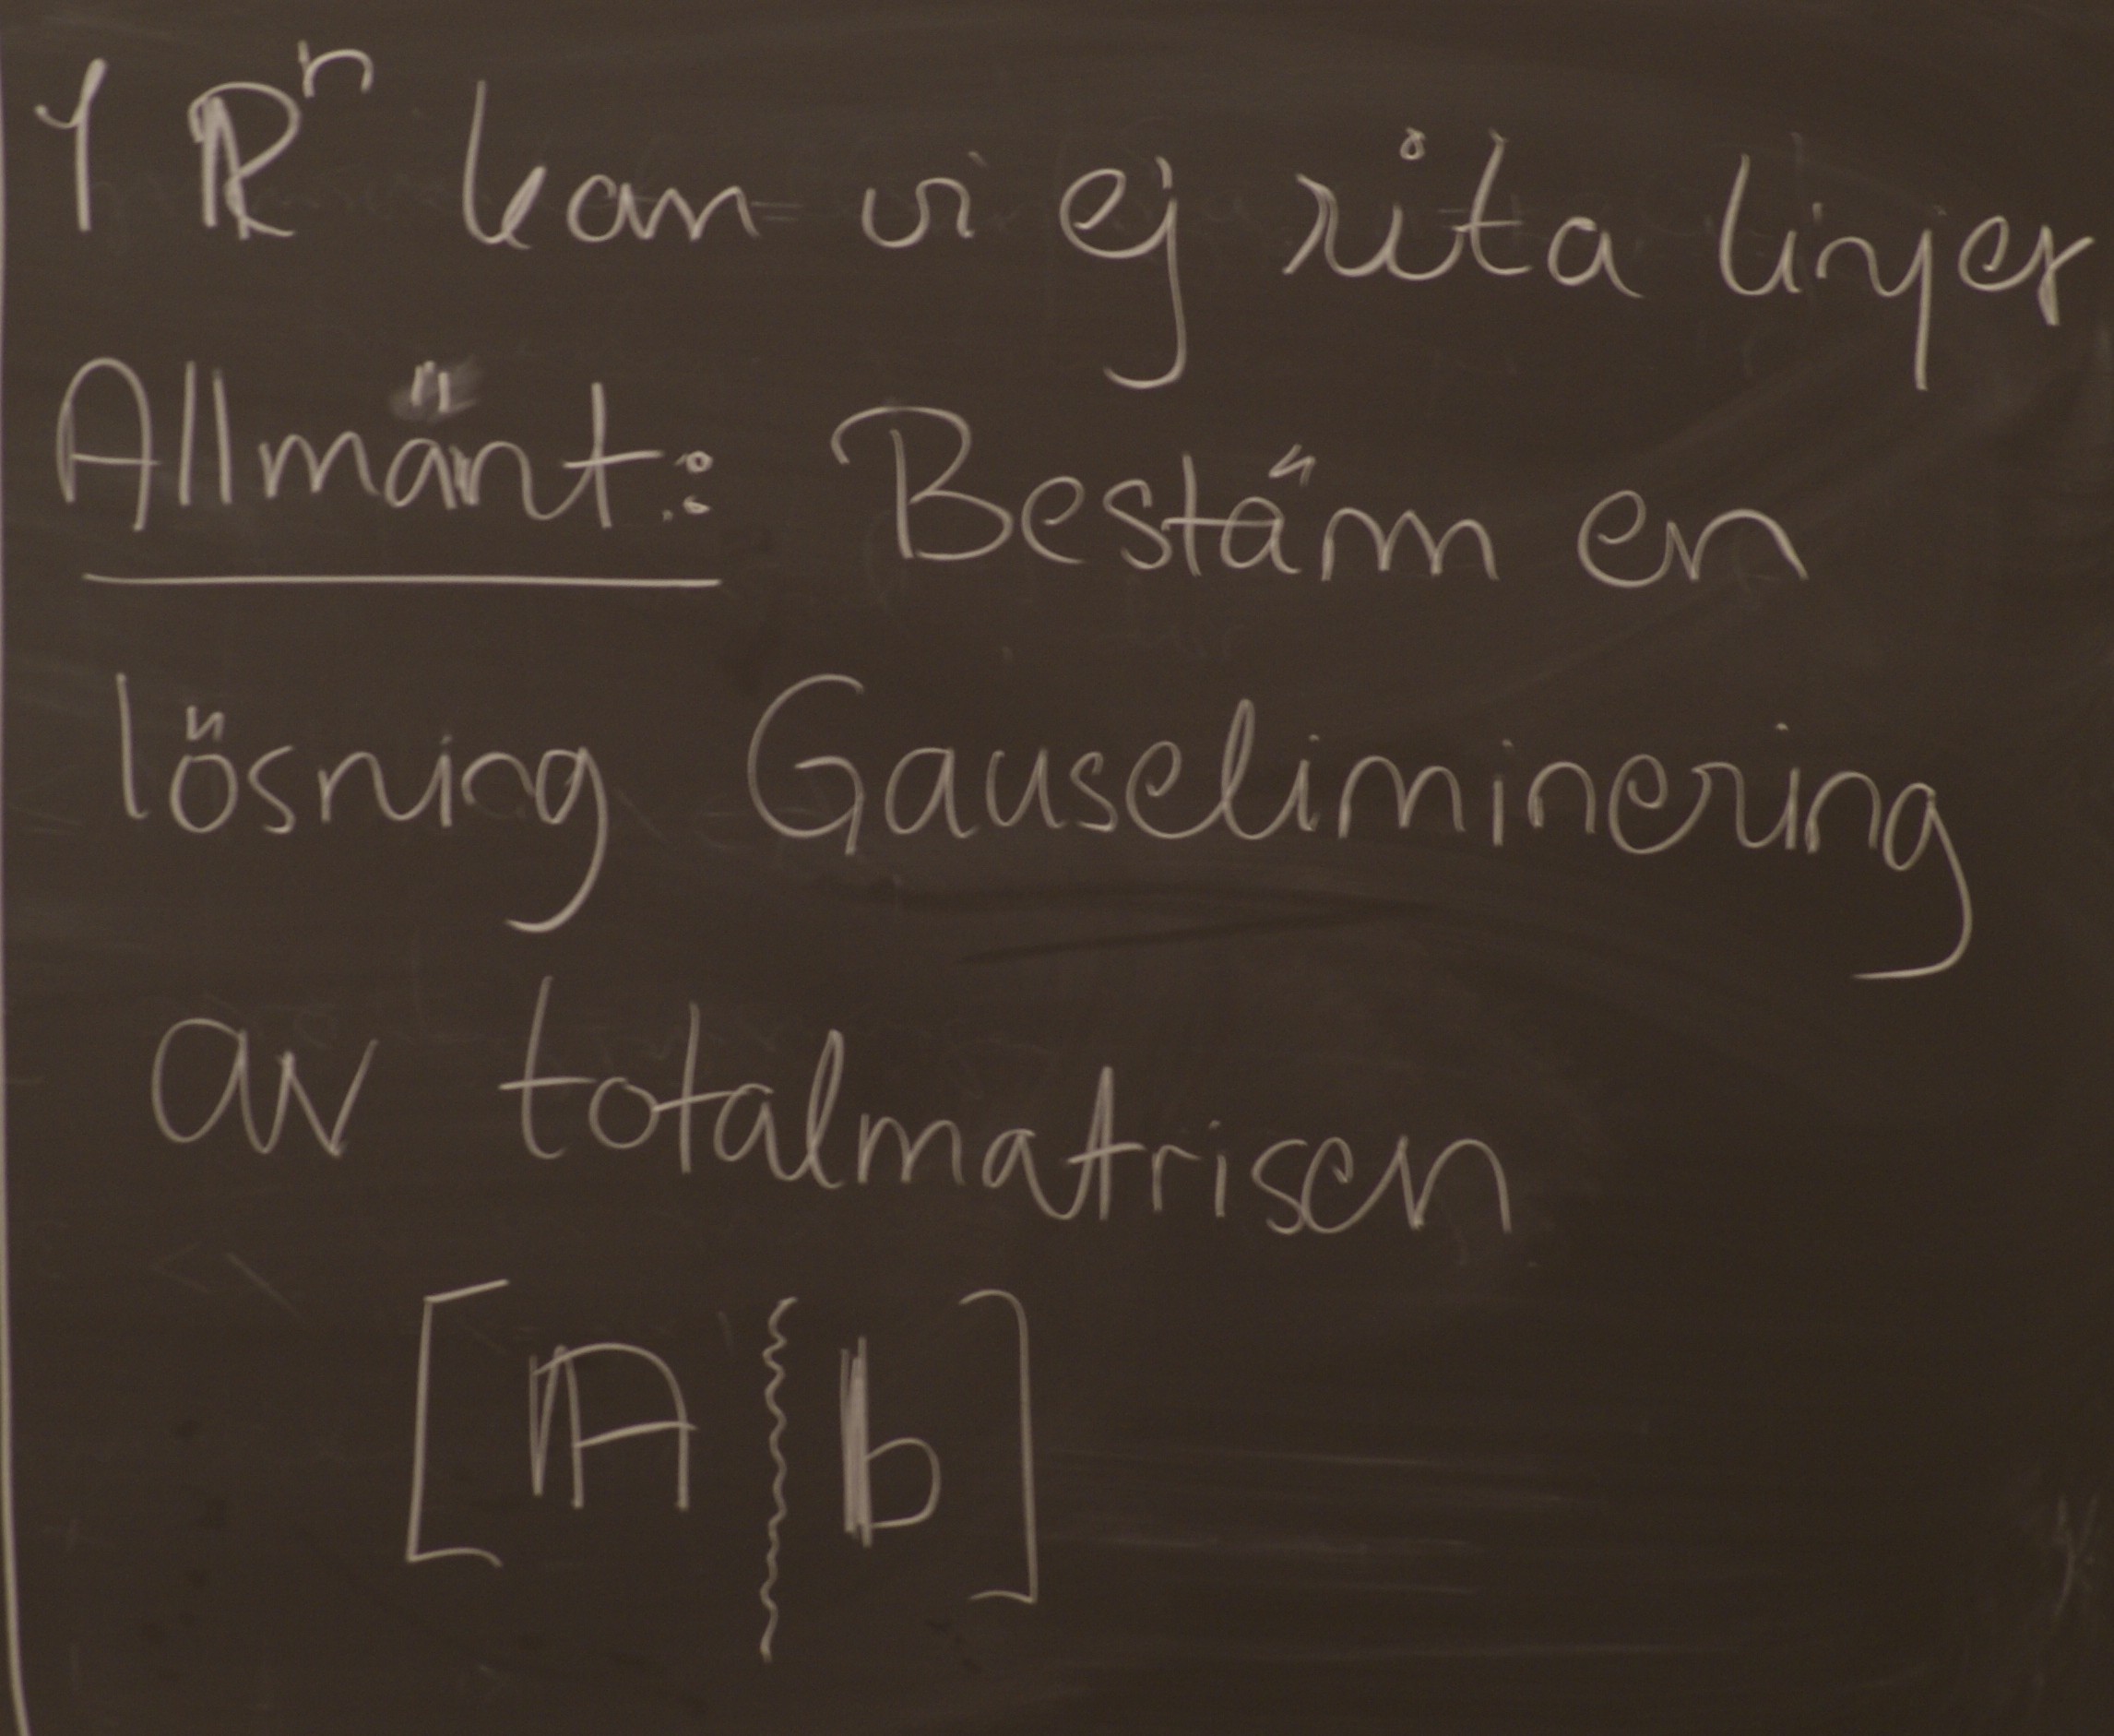 I ℝⁿ kan vi ej rita linjer
Allmänt: Bestäm en
lösning Gauseliminering
av totalmatrisen
[A | b]